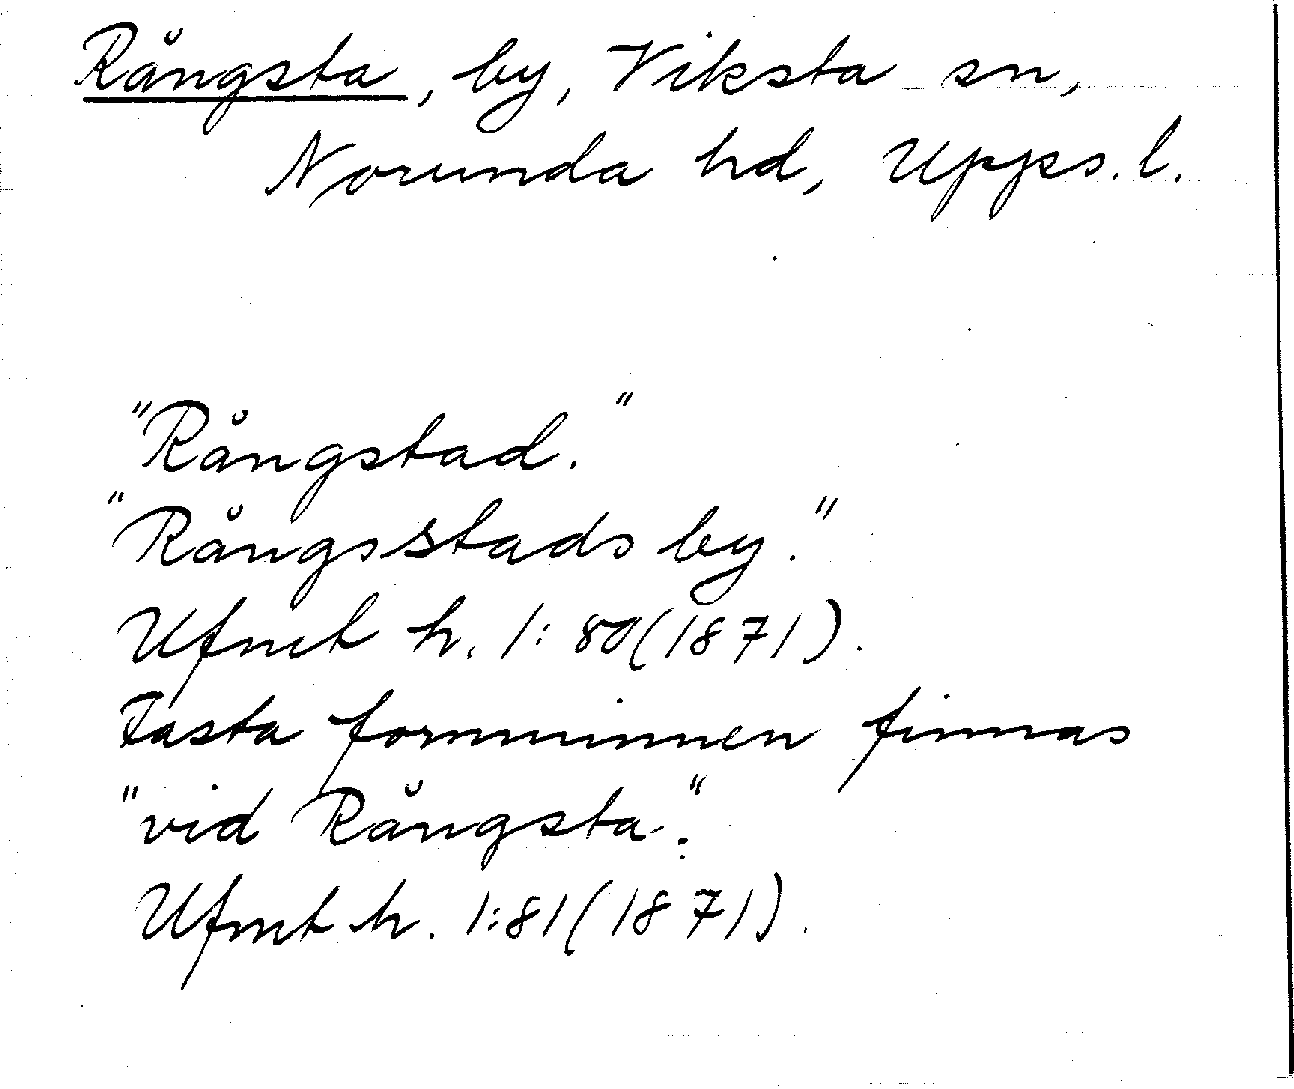 Rångsta, by, Viksta sn,
Norunda hd, Upps. l.
"Rångstad."
"Rångsstads by."
Ufmt h. 1:80(1871).
Fasta fornminnen finnas
"vid Rångsta".
Ufmt h. 1:81(1871).